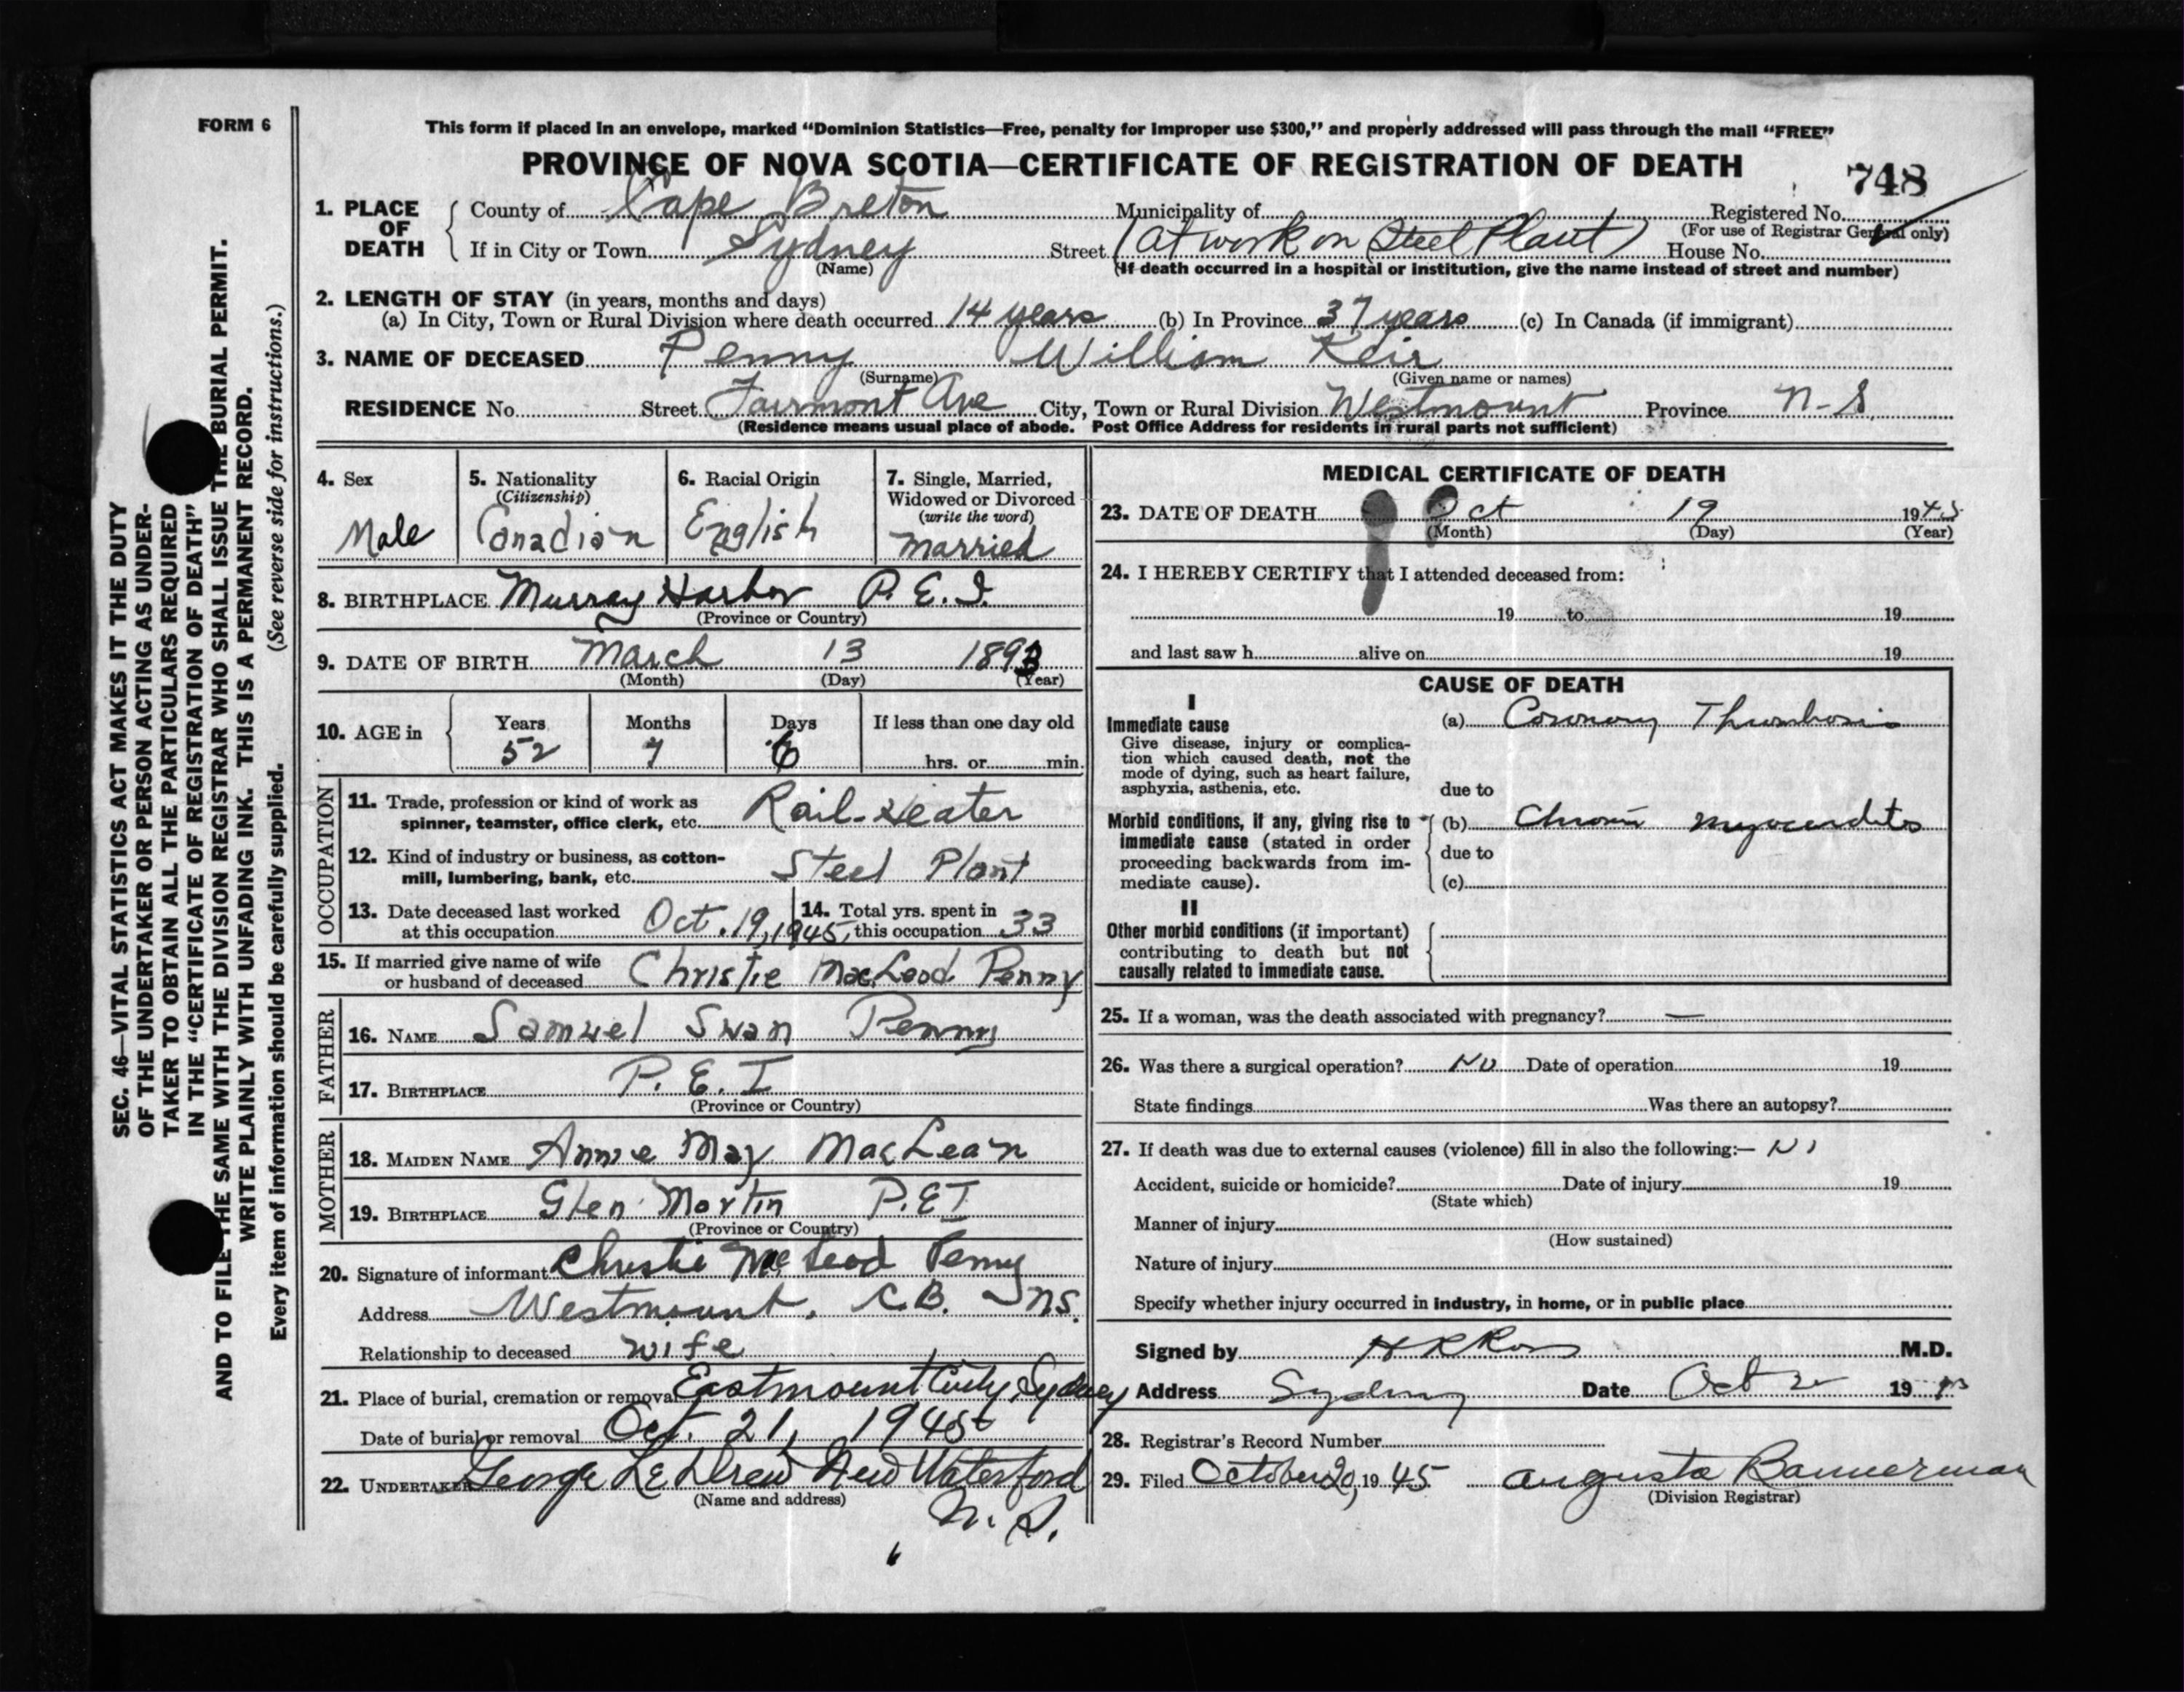 FORM 6
This form if placed in an envelope, marked "Dominion Statistics—Free, penalty for improper use $300," and properly addressed will pass through the mail "FREE"
PROVINCE OF NOVA SCOTIA—CERTIFICATE OF REGISTRATION OF DEATH
748
1. PLACE OF DEATH
County of Cape Breton Municipality of Registered No.
(For use of Registrar General only)
If in City or Town Sydney Street (at work on Steel Plant) House No.
(Name) (If death occurred in a hospital or institution, give the name instead of street and number)
2. LENGTH OF STAY (in years, months and days)
(a) In City, Town or Rural Division where death occurred 14 years (b) In Province 37 years (c) In Canada (if immigrant)
3. NAME OF DECEASED Penny William Keir
(Surname) (Given name or names)
RESIDENCE No. Street Fairmont Ave City, Town or Rural Division Westmount Province N-S
(Residence means usual place of abode. Post Office Address for residents in rural parts not sufficient)
4. Sex
Male
5. Nationality
(Citizenship)
Canadian
6. Racial Origin
English
7. Single, Married,
Widowed or Divorced
(write the word)
Married
8. BIRTHPLACE Murray Harbor P.E.I.
(Province or Country)
9. DATE OF BIRTH March 13 1893
(Month) (Day) (Year)
10. AGE in
Years Months Days If less than one day old
52 7 6 hrs. or min.
OCCUPATION
11. Trade, profession or kind of work as
spinner, teamster, office clerk, etc. Rail-Heater
12. Kind of industry or business, as cotton-
mill, lumbering, bank, etc. Steel Plant
13. Date deceased last worked
at this occupation Oct. 19, 1945
14. Total yrs. spent in
this occupation 33
15. If married give name of wife
or husband of deceased Christie MacLeod Penny
FATHER
16. NAME Samuel Swan Penny
17. BIRTHPLACE P.E.I
(Province or Country)
MOTHER
18. MAIDEN NAME Annie May MacLean
19. BIRTHPLACE Glen Martin P.E.I
(Province or Country)
20. Signature of informant Christie MacLeod Penny
Address Westmount, C.B. NS.
Relationship to deceased wife
21. Place of burial, cremation or removal Eastmount Sydney
Date of burial or removal Oct. 21, 1945
22. UNDERTAKER George LeDrew New Waterford
(Name and address)
N.S.
MEDICAL CERTIFICATE OF DEATH
23. DATE OF DEATH Oct 19 1945
(Month) (Day) (Year)
24. I HEREBY CERTIFY that I attended deceased from:
19 to 19
and last saw h alive on 19
CAUSE OF DEATH
I
Immediate cause (a) Coronary Thrombosis
Give disease, injury or complica-
tion which caused death, not the
mode of dying, such as heart failure,
asphyxia, asthenia, etc.
due to
Morbid conditions, if any, giving rise to
immediate cause (stated in order
proceeding backwards from im-
mediate cause).
(b) Chronic myocarditis
due to
(c)
II
Other morbid conditions (if important)
contributing to death but not
causally related to immediate cause.
25. If a woman, was the death associated with pregnancy? —
26. Was there a surgical operation? No Date of operation 19
State findings Was there an autopsy?
27. If death was due to external causes (violence) fill in also the following:—
Accident, suicide or homicide? Date of injury 19
(State which)
Manner of injury
(How sustained)
Nature of injury
Specify whether injury occurred in industry, in home, or in public place
Signed by H R Ross M.D.
Address Sydney Date Oct 19
28. Registrar's Record Number
29. Filed October 20, 1945 Augusta Bannerman
(Division Registrar)
SEC. 46—VITAL STATISTICS ACT MAKES IT THE DUTY
OF THE UNDERTAKER OR PERSON ACTING AS UNDER-
TAKER TO OBTAIN ALL THE PARTICULARS REQUIRED
IN THE "CERTIFICATE OF REGISTRATION OF DEATH"
AND TO FILE THE SAME WITH THE DIVISION REGISTRAR WHO SHALL ISSUE THE BURIAL PERMIT.
WRITE PLAINLY WITH UNFADING INK. THIS IS A PERMANENT RECORD.
Every item of information should be carefully supplied. (See reverse side for instructions.)